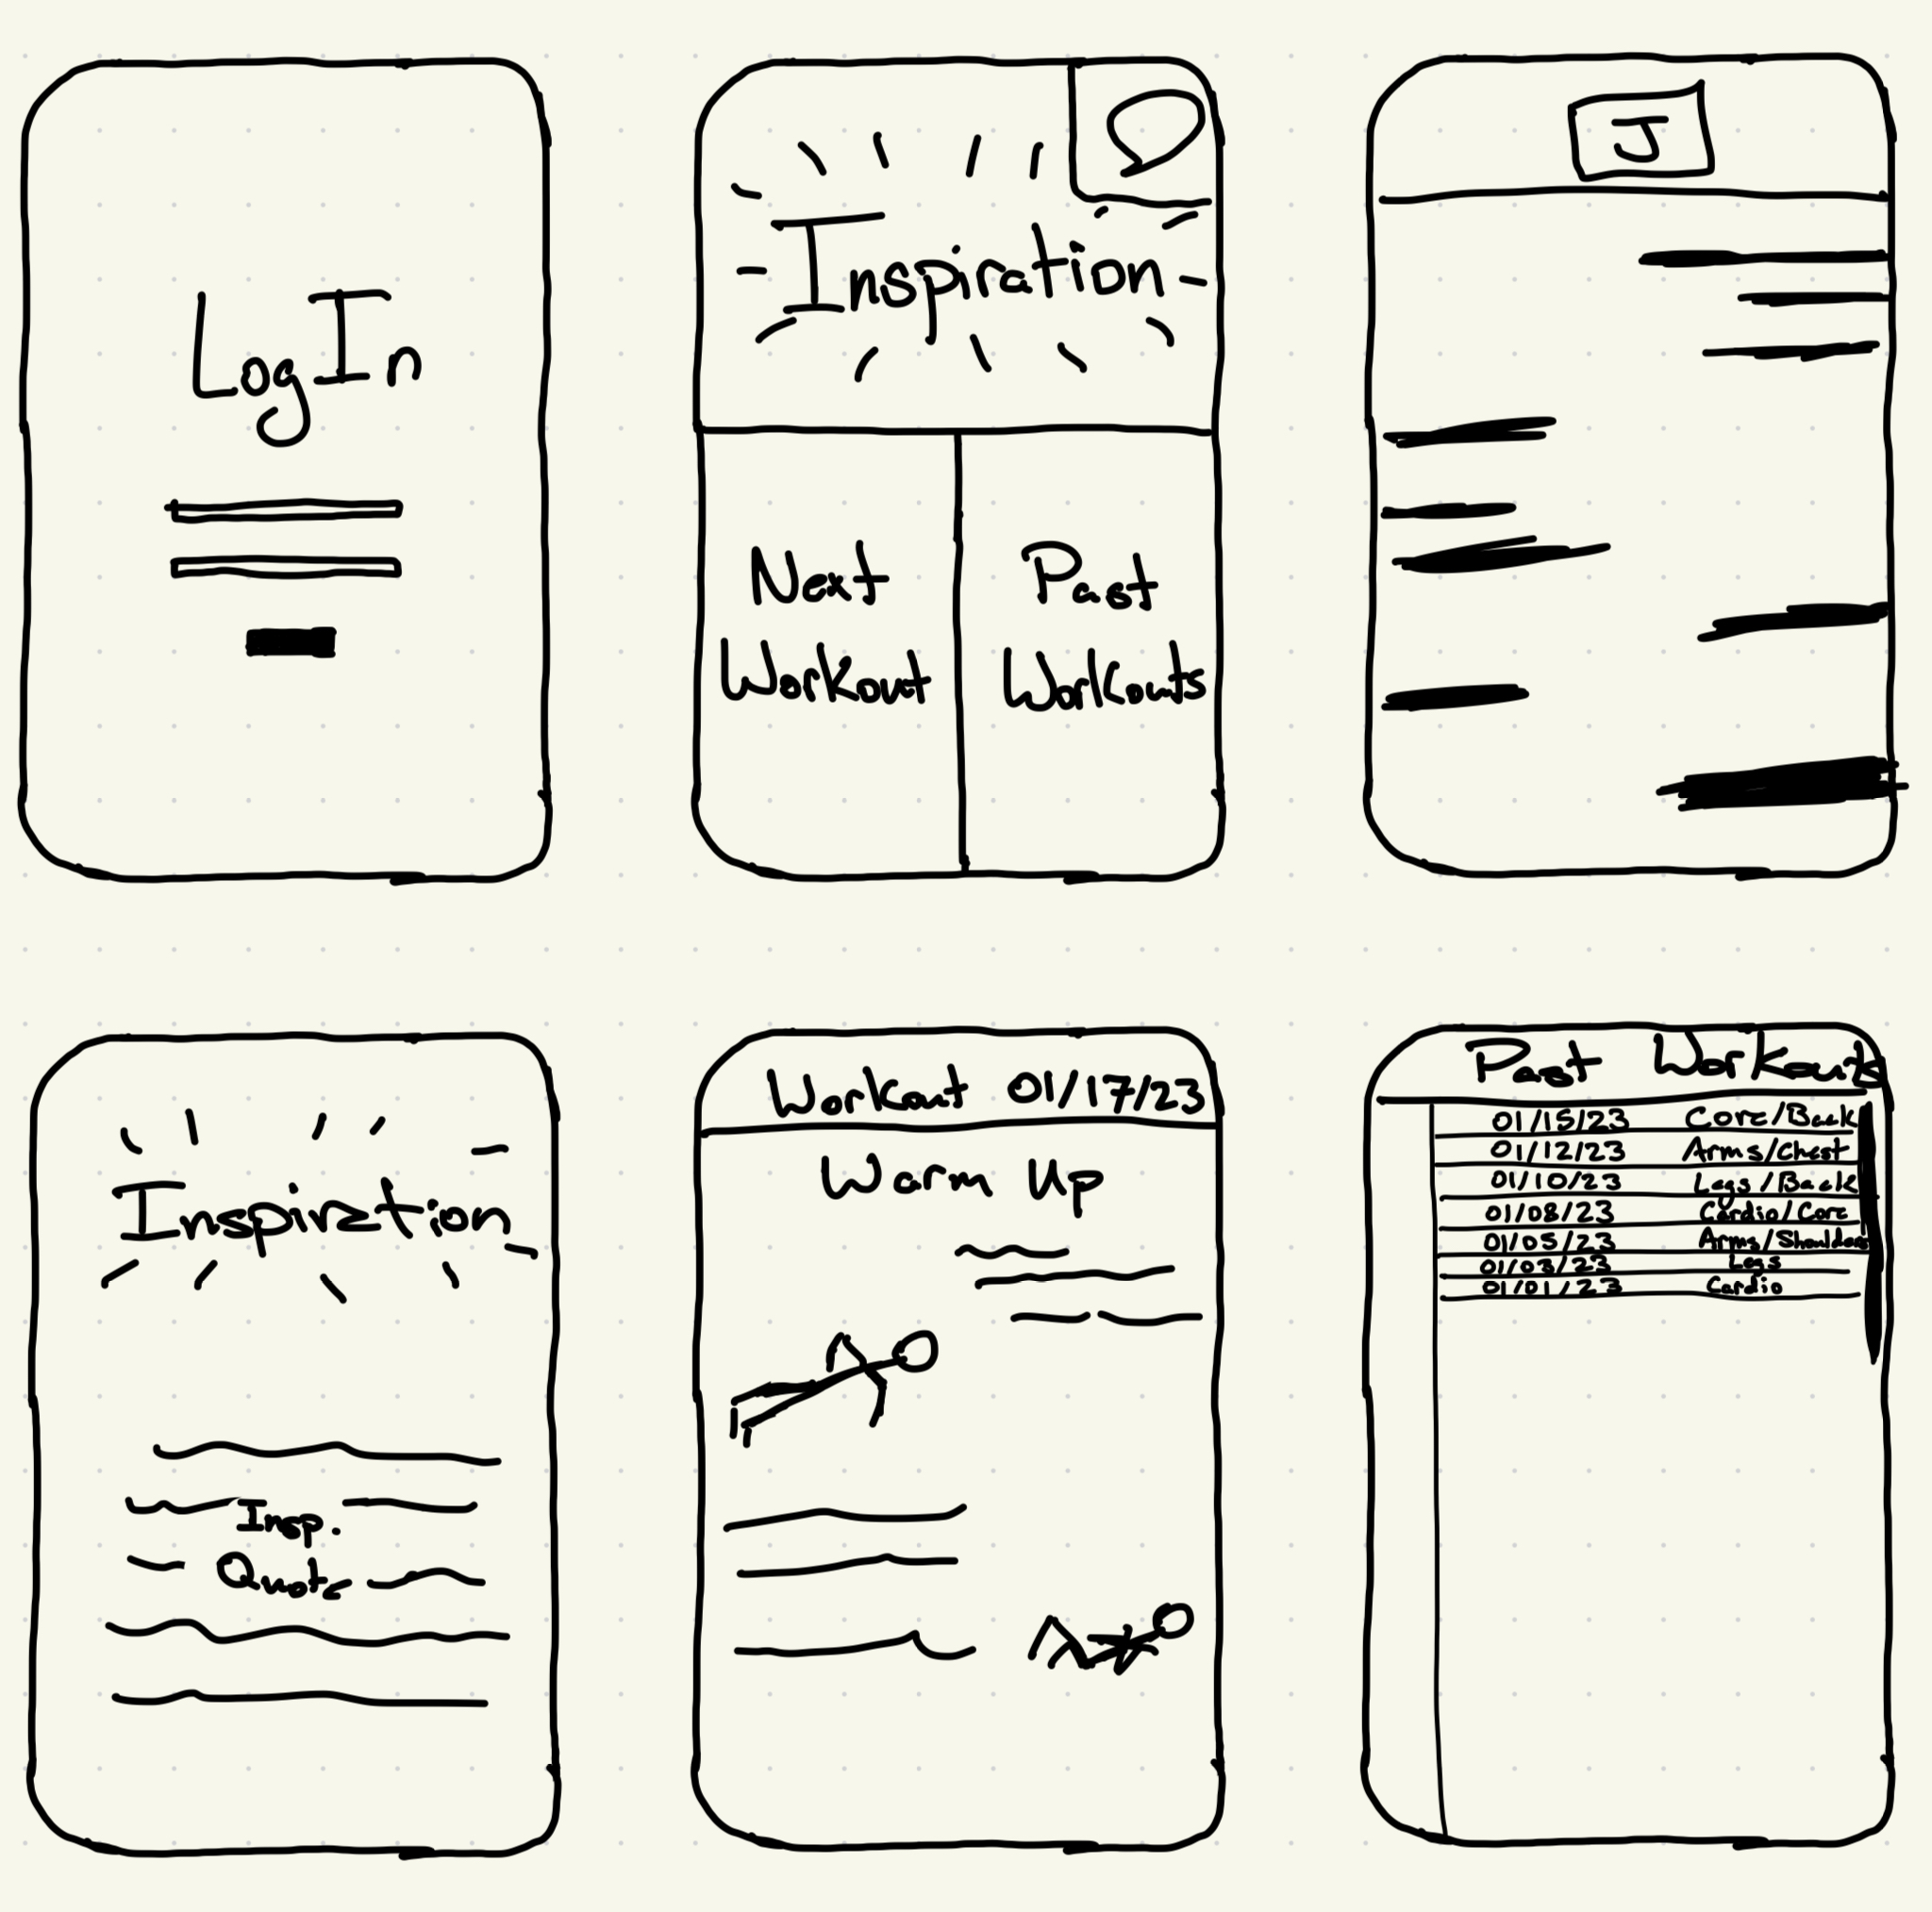 Log In
Inspiration
Next
Workout
Past
Workouts
J
Inspiration
Insp.
Quote
Workout 01/17/23
Warm Up
Past Workouts
01/15/23 Core/Back
01/12/23 Arms/Chest
01/10/23 Legs/Back
01/08/23 Cardio/Core
01/05/23 Arms/Shoulders
01/03/23 Legs
01/01/23 Cardio